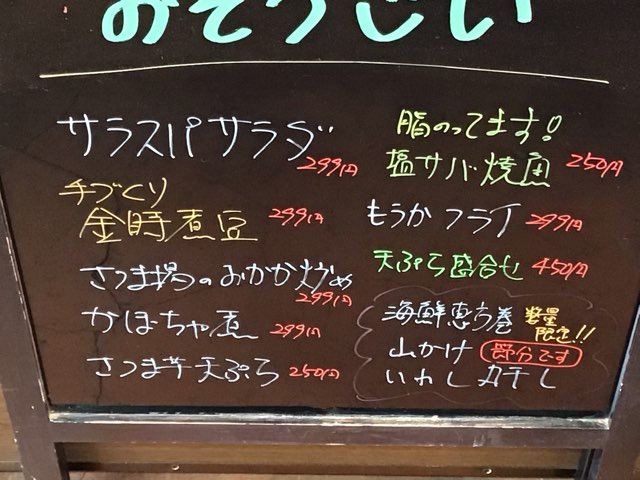 おそうざい
サラスパサラダ
299円
手づくり
金時煮豆 299円
さつま揚のおかか炒め
299円
かぼちゃ煮 299円
さつま芋天ぷら 250円
脂のってます!
塩サバ焼魚 250円
もうかフライ 299円
天ぷら盛合せ 450円
海鮮恵方巻 数量
限定!!
山かけ 節分です
いわし丸干し